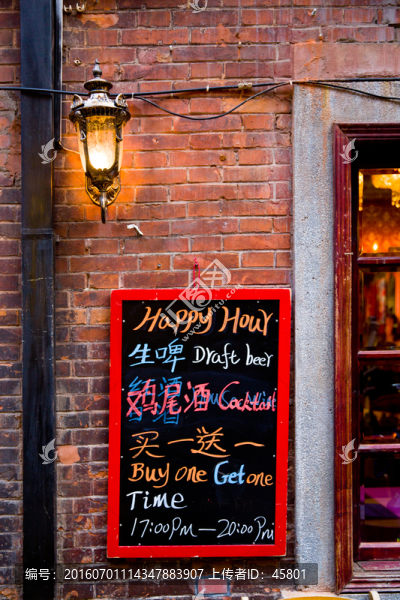 Happy Hour
生啤 Draft beer
鸡尾酒 Cocktail
买一送一
Buy one Get one
Time
17:00PM—20:00PM
编号:20160701114347883907 上传@45801